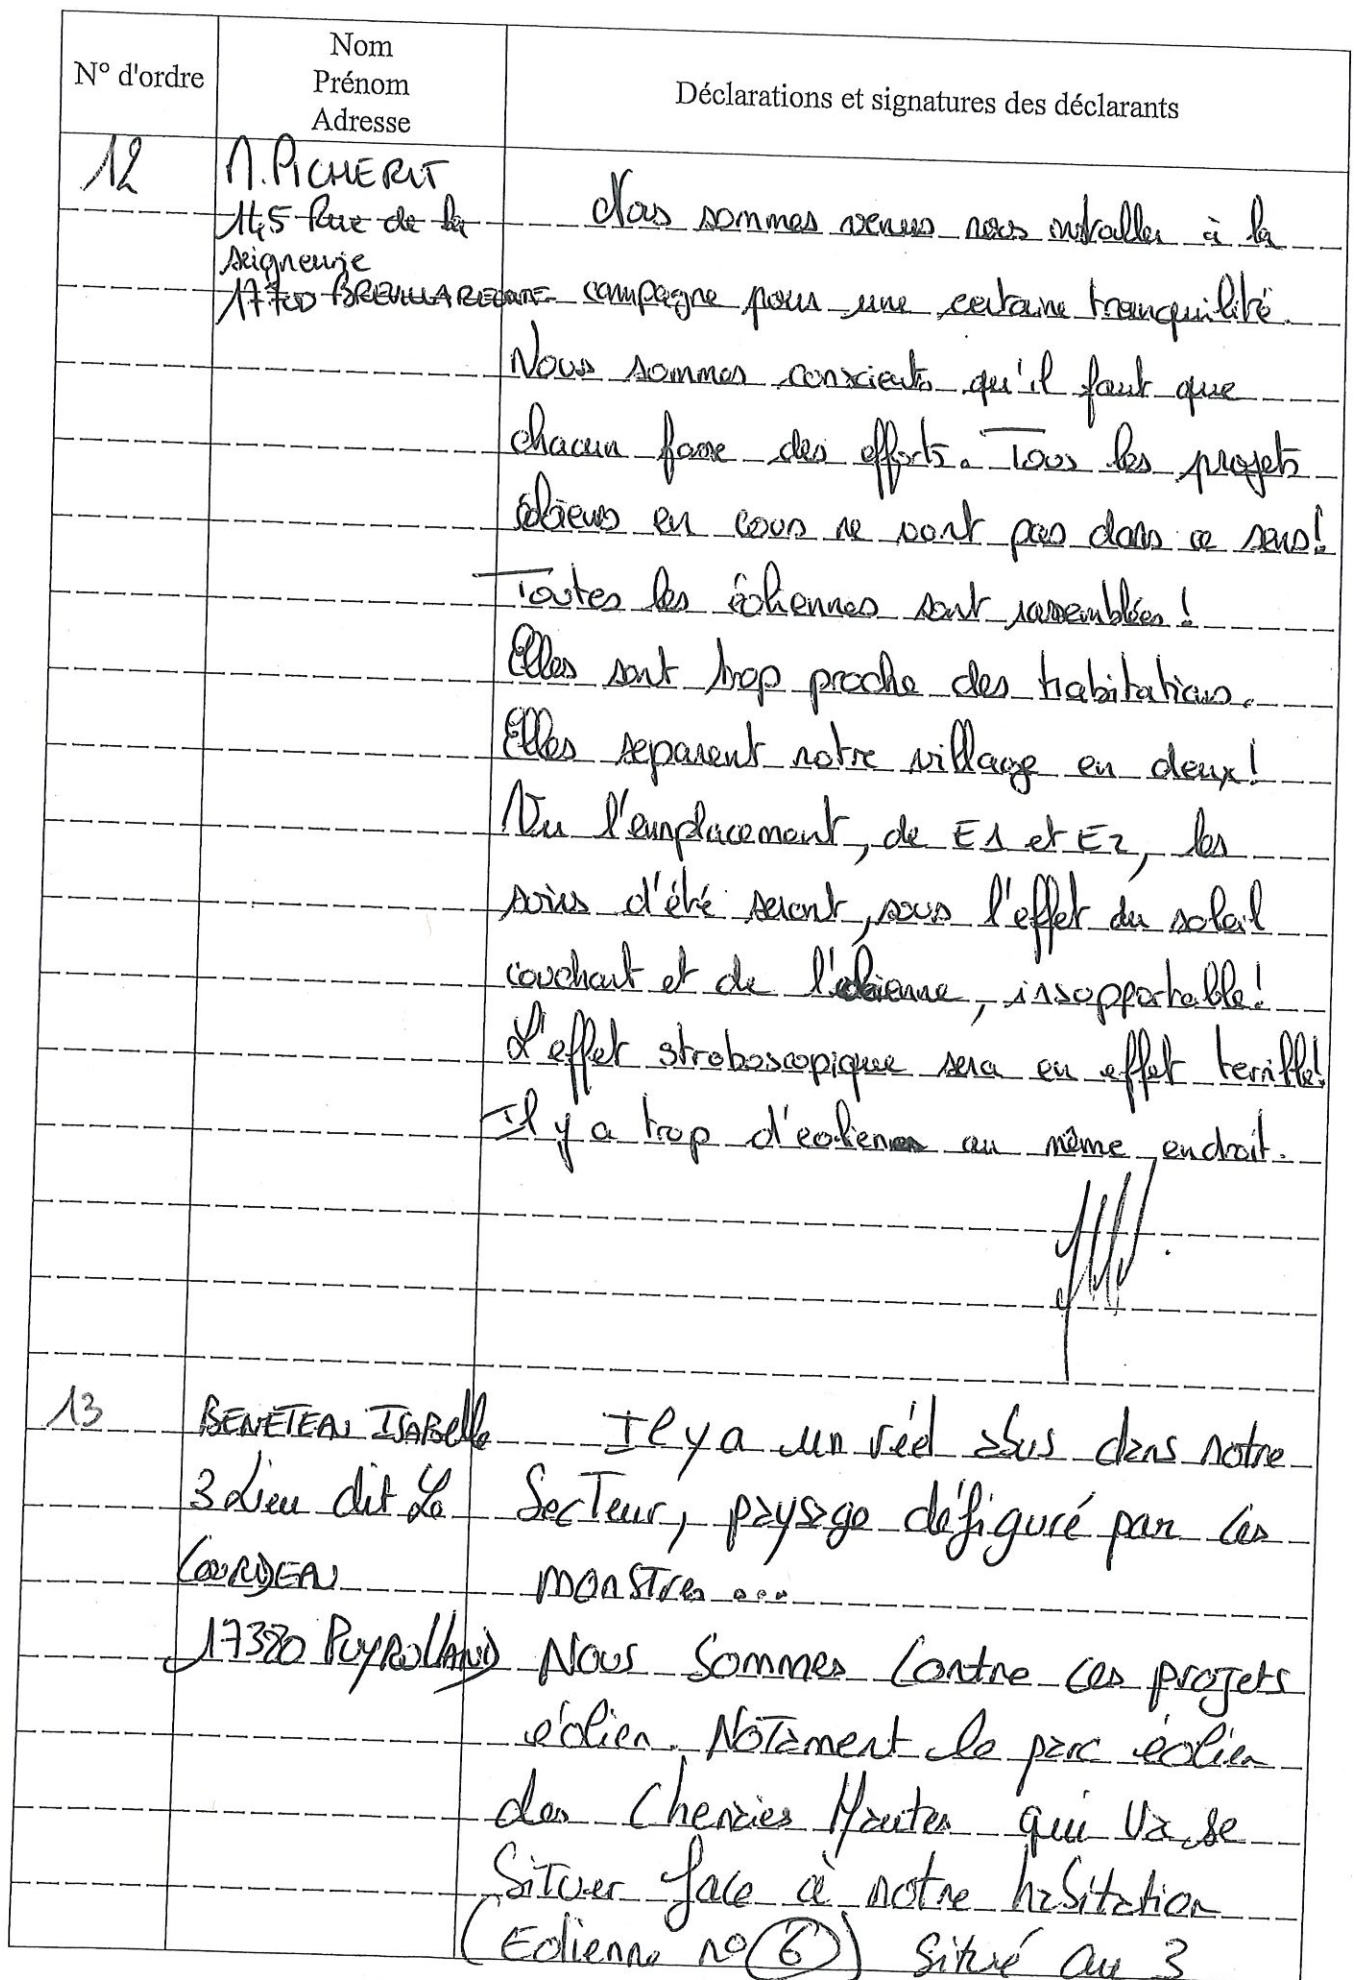 N° d'ordre
Nom
Prénom
Adresse
Déclarations et signatures des déclarants
12
M. PICHERIT
145 Rue de la
seigneurie
17700
Nous sommes venus nous installer à la
campagne pour une certaine tranquilité.
Nous sommes conscients qu'il faut que
chacun fasse des efforts. Tous les projets
éoliens en cours ne vont pas dans ce sens!
Toutes les éoliennes sont rassemblées!
Elles sont trop proche des habitations.
Elles separent notre village en deux!
Vu l'emplacement, de E1 et E2, les
soirs d'été seront, sous l'effet du soleil
couchant et de l'éolienne, insopportable!
L'effet stroboscopique sera en effet terrible!
Il y a trop d'eoliennes au même endroit.
13
BENETEAU ISABelle
3 Lieu dit Le
17380 PUYROLLAND
Il y a un réel abus dans notre
Secteur, paysage défiguré par ces
monstres...
Nous sommes contre ces projets
éolien. Notament le parc éolien
des Chenaies Hautes qui va se
Situer face à notre habitation
(Eolienne n° 6) situé au 3